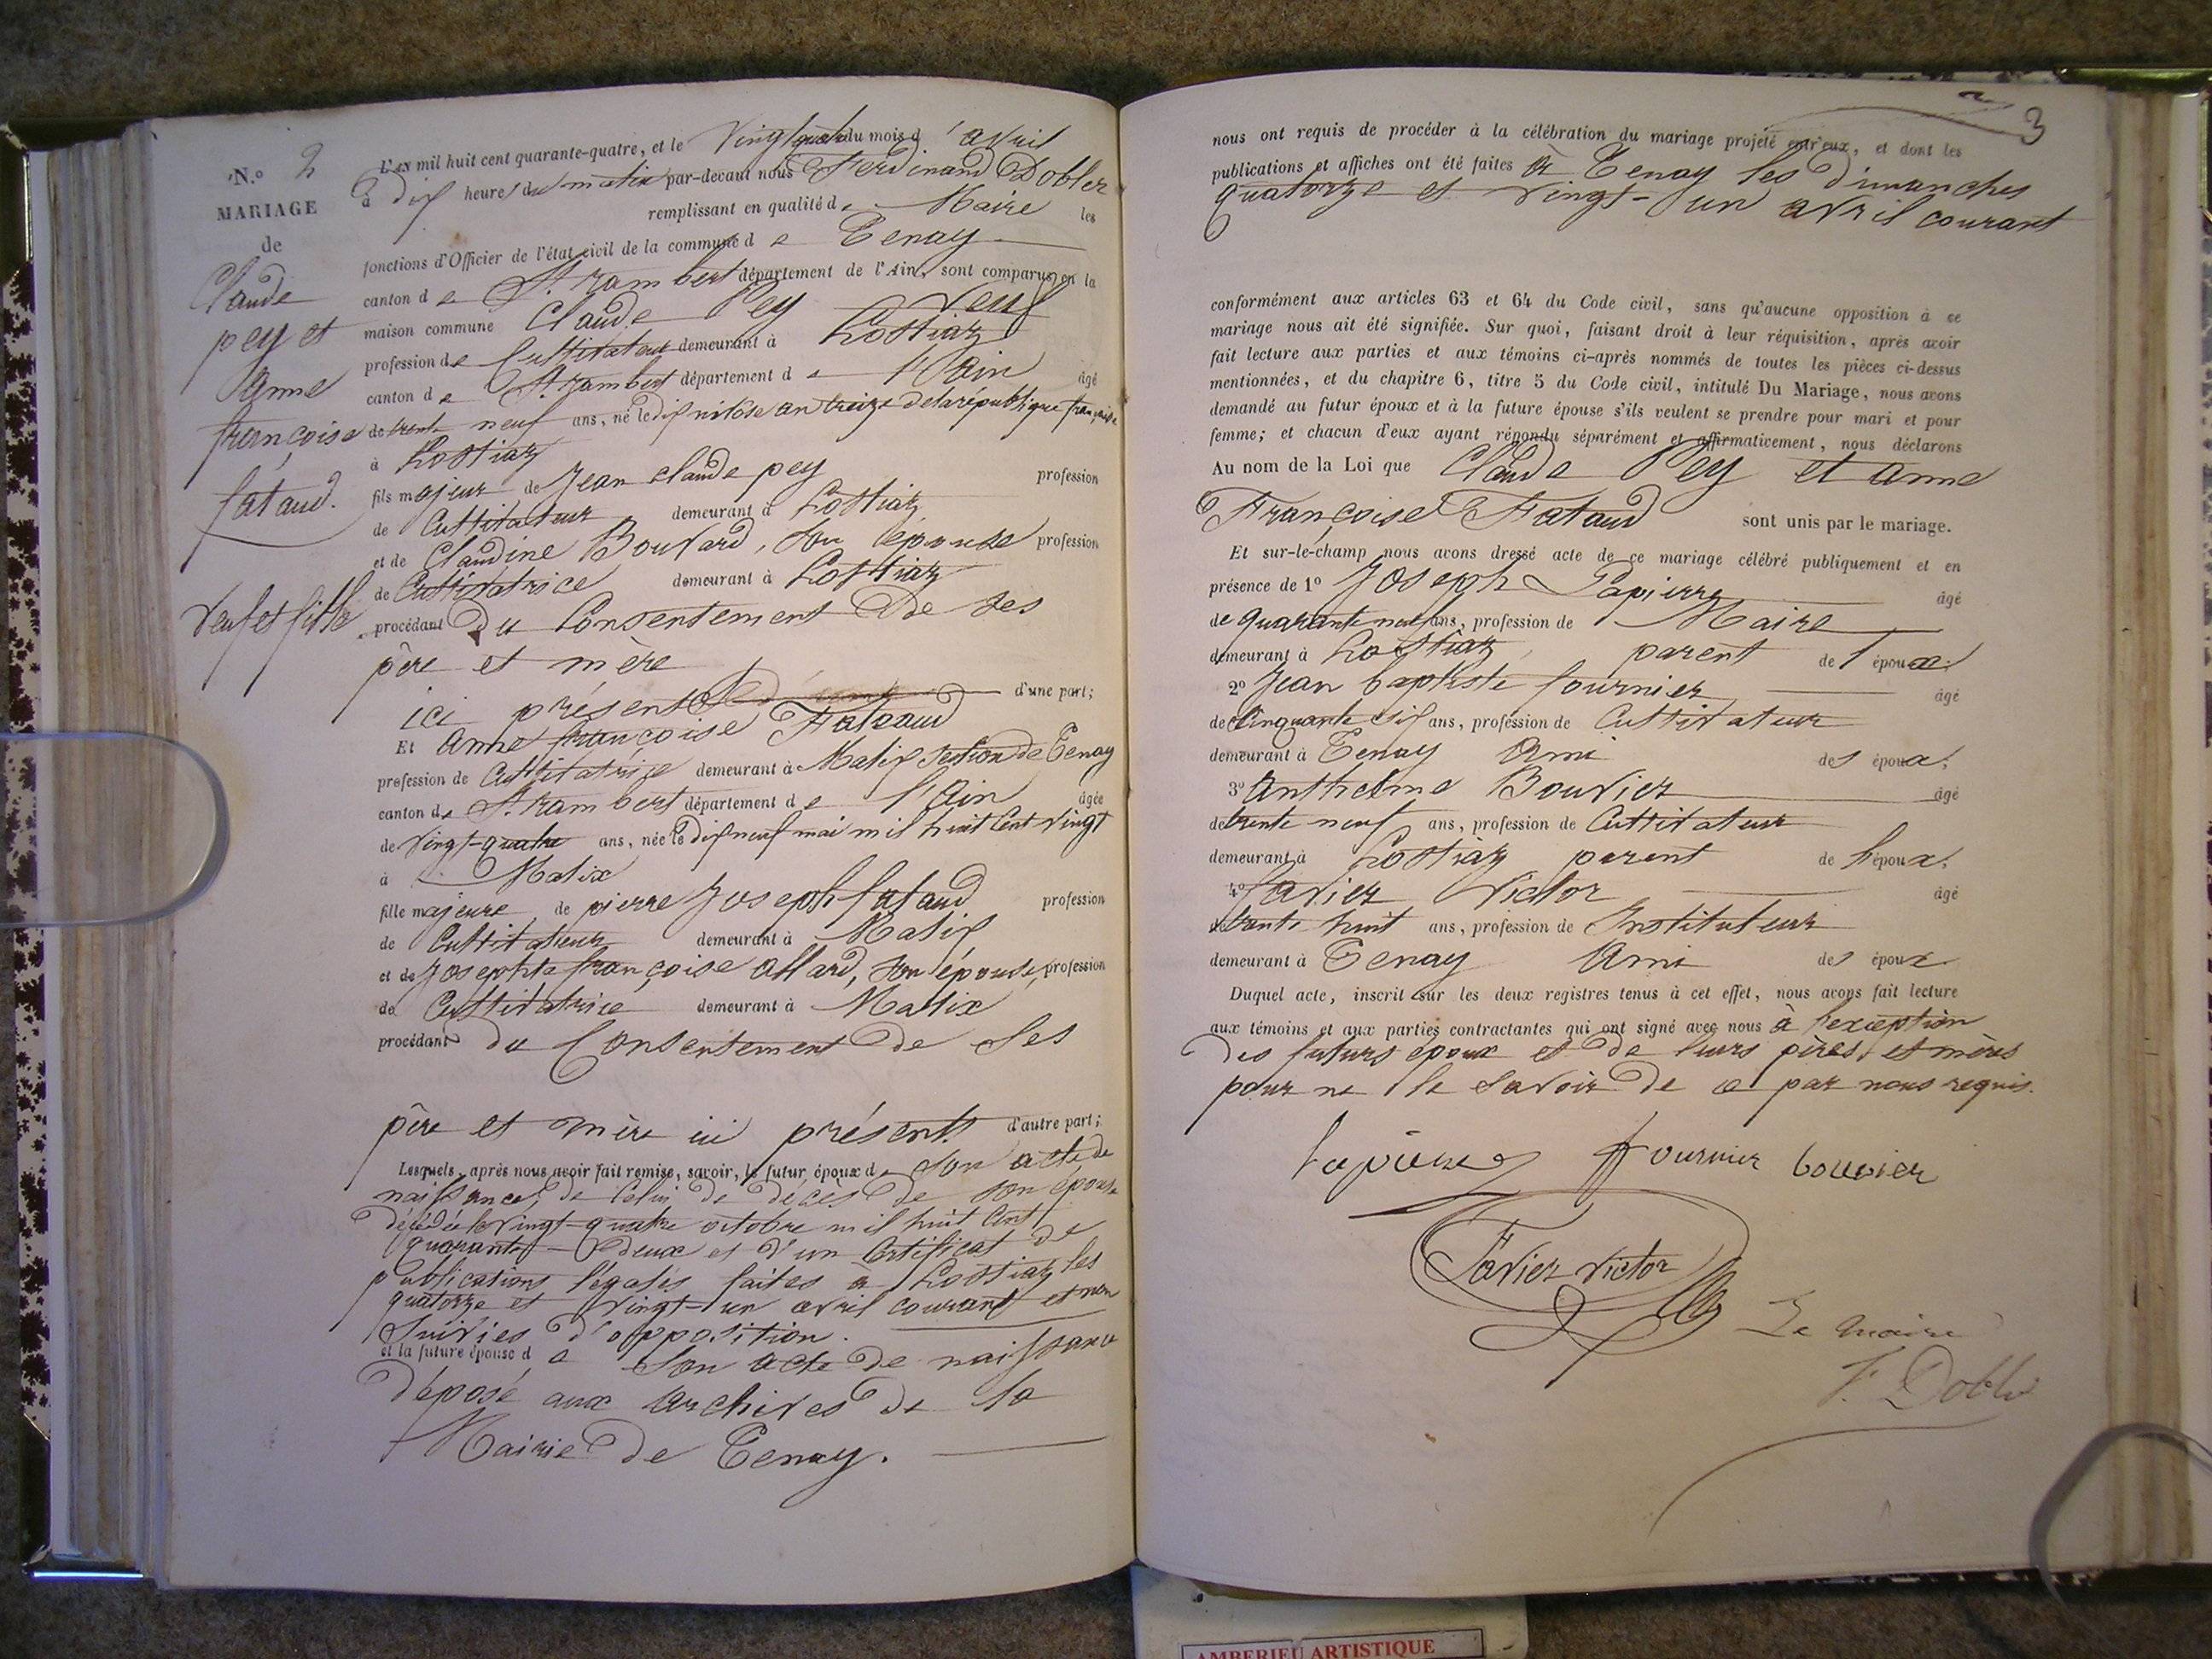 N.º 2
MARIAGE
de
Claude
pey et
Anne
françoise
fataud.
veuf et fille
L'an mil huit cent quarante-quatre, et le vingt quatre du mois d'avril
à dix heures du matin par-devant nous Ferdinand Dobler
remplissant en qualité de Maire les
fonctions d'Officier de l'état civil de la commune de Tenay
canton de St. rambert département de l'Ain, sont comparus en la
maison commune Claude Pey veuf
profession de Cultivateur demeurant à Lostiaz
canton de St. rambert département de l'Ain âgé
de trente neuf ans, né le dix nivôse an treize de la république française
à Hostiaz
fils majeur de Jean claude pey profession
de Cultivateur demeurant à hostiaz
et de Claudine Bouvard, son épouse profession
de Cultivatrice demeurant à hostiaz
procédant du Consentement de ses
père et mère
ici présents d'une part;
Et Anne françoise Fataud
profession de Cultivatrice demeurant à Malix section de Tenay
canton de St. rambert département de l'Ain âgée
de vingt-quatre ans, née le dix neuf mai mil huit cent vingt
à Malix
fille majeure de pierre Joseph fataud profession
de Cultivateur demeurant à Malix
et de Josephte françoise allard, son épouse, profession
de Cultivatrice demeurant à Malix
procédant du Consentement de ses
père et mère ici présents d'autre part;
Lesquels, après nous avoir fait remise, savoir, le futur époux de son acte de
naissance, de celui de décès de son épouse
décédée le vingt-quatre octobre mil huit cent
quarante-deux et d'un certificat de
publications légales faites à hostiaz les
quatorze et vingt-un avril courant et non
suivies d'opposition.
et la future épouse de son acte de naissance
déposé aux archives de la
Mairie de Tenay.
3
nous ont requis de procéder à la célébration du mariage projeté entr'eux, et dont les
publications et affiches ont été faites à Tenay les dimanches
quatorze et vingt-un avril courant
conformément aux articles 63 et 64 du Code civil, sans qu'aucune opposition à ce
mariage nous ait été signifiée. Sur quoi, faisant droit à leur réquisition, après avoir
fait lecture aux parties et aux témoins ci-après nommés de toutes les pièces ci-dessus
mentionnées, et du chapitre 6, titre 5 du Code civil, intitulé Du Mariage, nous avons
demandé au futur époux et à la future épouse s'ils veulent se prendre pour mari et pour
femme; et chacun d'eux ayant répondu séparément et affirmativement, nous déclarons
Au nom de la Loi que Claude Pey et anne
Françoise Fataud sont unis par le mariage.
Et sur-le-champ nous avons dressé acte de ce mariage célébré publiquement et en
présence de 1º Joseph Lapierre âgé
de quarante neuf ans, profession de Maire
demeurant à hostiaz, parent de l'époux.
2º Jean baptiste fournier âgé
de cinquante six ans, profession de Cultivateur
demeurant à Tenay Ami des époux;
3º Anthelme Bouvier âgé
de trente neuf ans, profession de Cultivateur
demeurant à hostiaz parent de l'époux.
4º favier Victor âgé
de trente huit ans, profession de Instituteur
demeurant à Tenay Ami des époux
Duquel acte, inscrit sur les deux registres tenus à cet effet, nous avons fait lecture
aux témoins et aux parties contractantes qui ont signé avec nous à l'exception
des futurs époux et de leurs pères et mères
pour ne le savoir de ce par nous requis.
lapierre fournier bouvier
Favier victor
Le maire
F. Dobler
AMBERIEU ARTISTIQUE